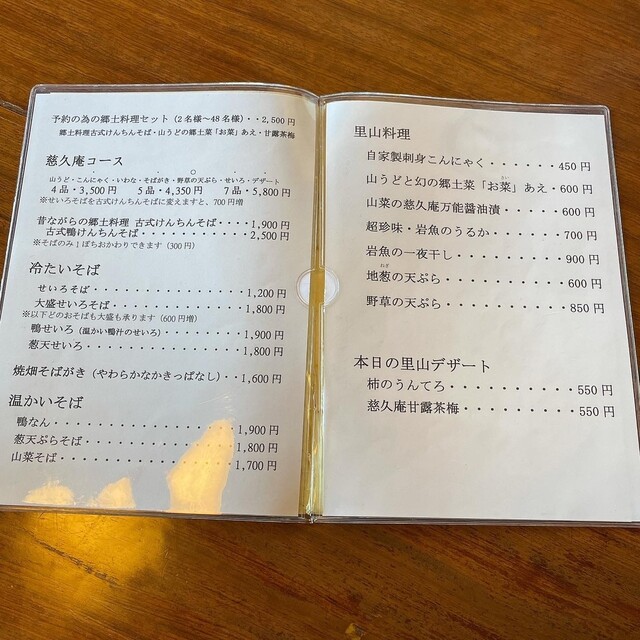 予約の為の郷土料理セット（2名様〜48名様）・・2,500円
郷土料理古式けんちんそば・山うどの郷土菜「お菜」あえ・甘露茶梅
慈久庵コース
山うど・こんにゃく・いわな・そばがき・野草の天ぷら・せいろ・デザート
4品・3,500円　5品・4,350円　7品・5,800円
※せいろそばを古式けんちんそばに変えますと、700円増
昔ながらの郷土料理 古式けんちんそば・・・・1,900円
古式鴨けんちんそば・・・・・・・・・・・2,500円
※そのみ1ぼちおかわりできます（300円）
冷たいそば
せいろそば・・・・・・・・・・・・・・・1,200円
大盛せいろそば・・・・・・・・・・・・・1,800円
※以下どのおそばも大盛も承ります（600円増）
鴨せいろ（温かい鴨汁のせいろ）・・・・・・1,900円
葱天せいろ・・・・・・・・・・・・・・・1,800円
焼畑そばがき（やわらかなかきっぱなし）・・・1,600円
温かいそば
鴨なん・・・・・・・・・・・・・・・・・1,900円
葱天ぷらそば・・・・・・・・・・・・・・1,800円
山菜そば・・・・・・・・・・・・・・・・1,700円
里山料理
自家製刺身こんにゃく・・・・・・450円
山うどと幻の郷土菜「お菜」あえ・600円
山菜の慈久庵万能醤油漬・・・・・600円
超珍味・岩魚のうるか・・・・・・700円
岩魚の一夜干し・・・・・・・・・900円
地葱の天ぷら・・・・・・・・・・600円
野草の天ぷら・・・・・・・・・・850円
本日の里山デザート
柿のうんてろ・・・・・・・・・・・550円
慈久庵甘露茶梅・・・・・・・・・・550円